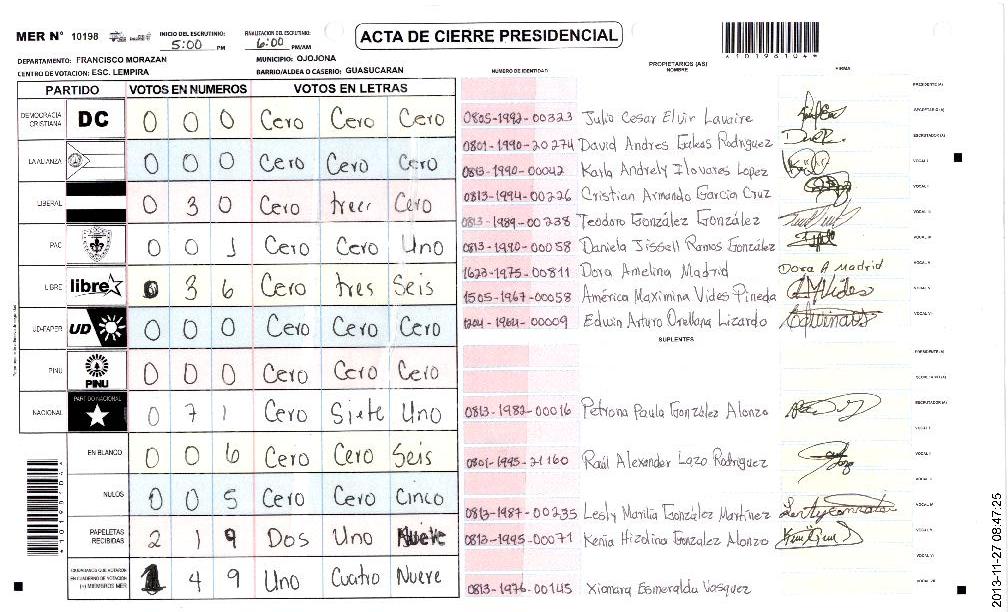 MER N° 10198 INICIO DEL ESCRUTINIO: 5:00 PM FINALIZACION DEL ESCRUTINIO: 6:00 PM/AM ACTA DE CIERRE PRESIDENCIAL *10198104*
DEPARTAMENTO: FRANCISCO MORAZAN MUNICIPIO: OJOJONA
CENTRO DE VOTACION: ESC. LEMPIRA BARRIO/ALDEA O CASERIO: GUASUCARAN
PARTIDO VOTOS EN NUMEROS VOTOS EN LETRAS
DEMOCRACIA CRISTIANA DC 0 0 0 Cero Cero Cero
LA ALIANZA 0 0 0 Cero Cero Cero
LIBERAL 0 3 0 Cero trees Cero
PAC 0 0 1 Cero Cero Uno
LIBRE libre 0 3 6 Cero tres Seis
UD-FAPER UD 0 0 0 Cero Cero Cero
PINU PINU 0 0 0 Cero Cero Cero
NACIONAL PARTIDO NACIONAL 0 7 1 Cero Siete Uno
EN BLANCO 0 0 6 Cero Cero Seis
NULOS 0 0 5 Cero Cero Cinco
PAPELETAS RECIBIDAS 2 1 9 Dos Uno Nueve
CIUDADANOS QUE VOTARON
EN CUADERNO DE VOTACION
(+) MIEMBROS MER 1 4 9 Uno Cuatro Nueve
NUMERO DE IDENTIDAD PROPIETARIOS (AS) NOMBRE FIRMA
PRESIDENTE (A)
0805-1992-00323 Julio Cesar Elvir Lavaire SECRETARIO (A)
0801-1990-20274 David Andres Galeas Rodriguez ESCRUTADOR (A)
0813-1990-00042 Karla Andrely Flovares Lopez VOCAL I
0813-1994-00226 Cristian Armando Garcia Cruz
0813-1989-00238 Teodoro González González
0813-1990-00058 Daniela Jissell Ramos González
1623-1975-00811 Dora Amelina Madrid Dora A Madrid
1505-1967-00058 América Maximina Vides Pineda
1204-1964-00009 Edwin Arturo Orellana Lizardo
SUPLENTES
PRESIDENTE (A)
SECRETARIO (A)
0813-1982-00016 Petrona Paula González Alonzo ESCRUTADOR (A)
0801-1995-21160 Raúl Alexander Lazo Rodriguez
0813-1987-00235 Lesly Marilia González Martínez
0813-1995-00071 Kenia Hizolina Gonzalez Alonzo
0813-1976-00145 Xiomara Esmeralda Vasquez
*10198104*
2013-11-27 08:47:25